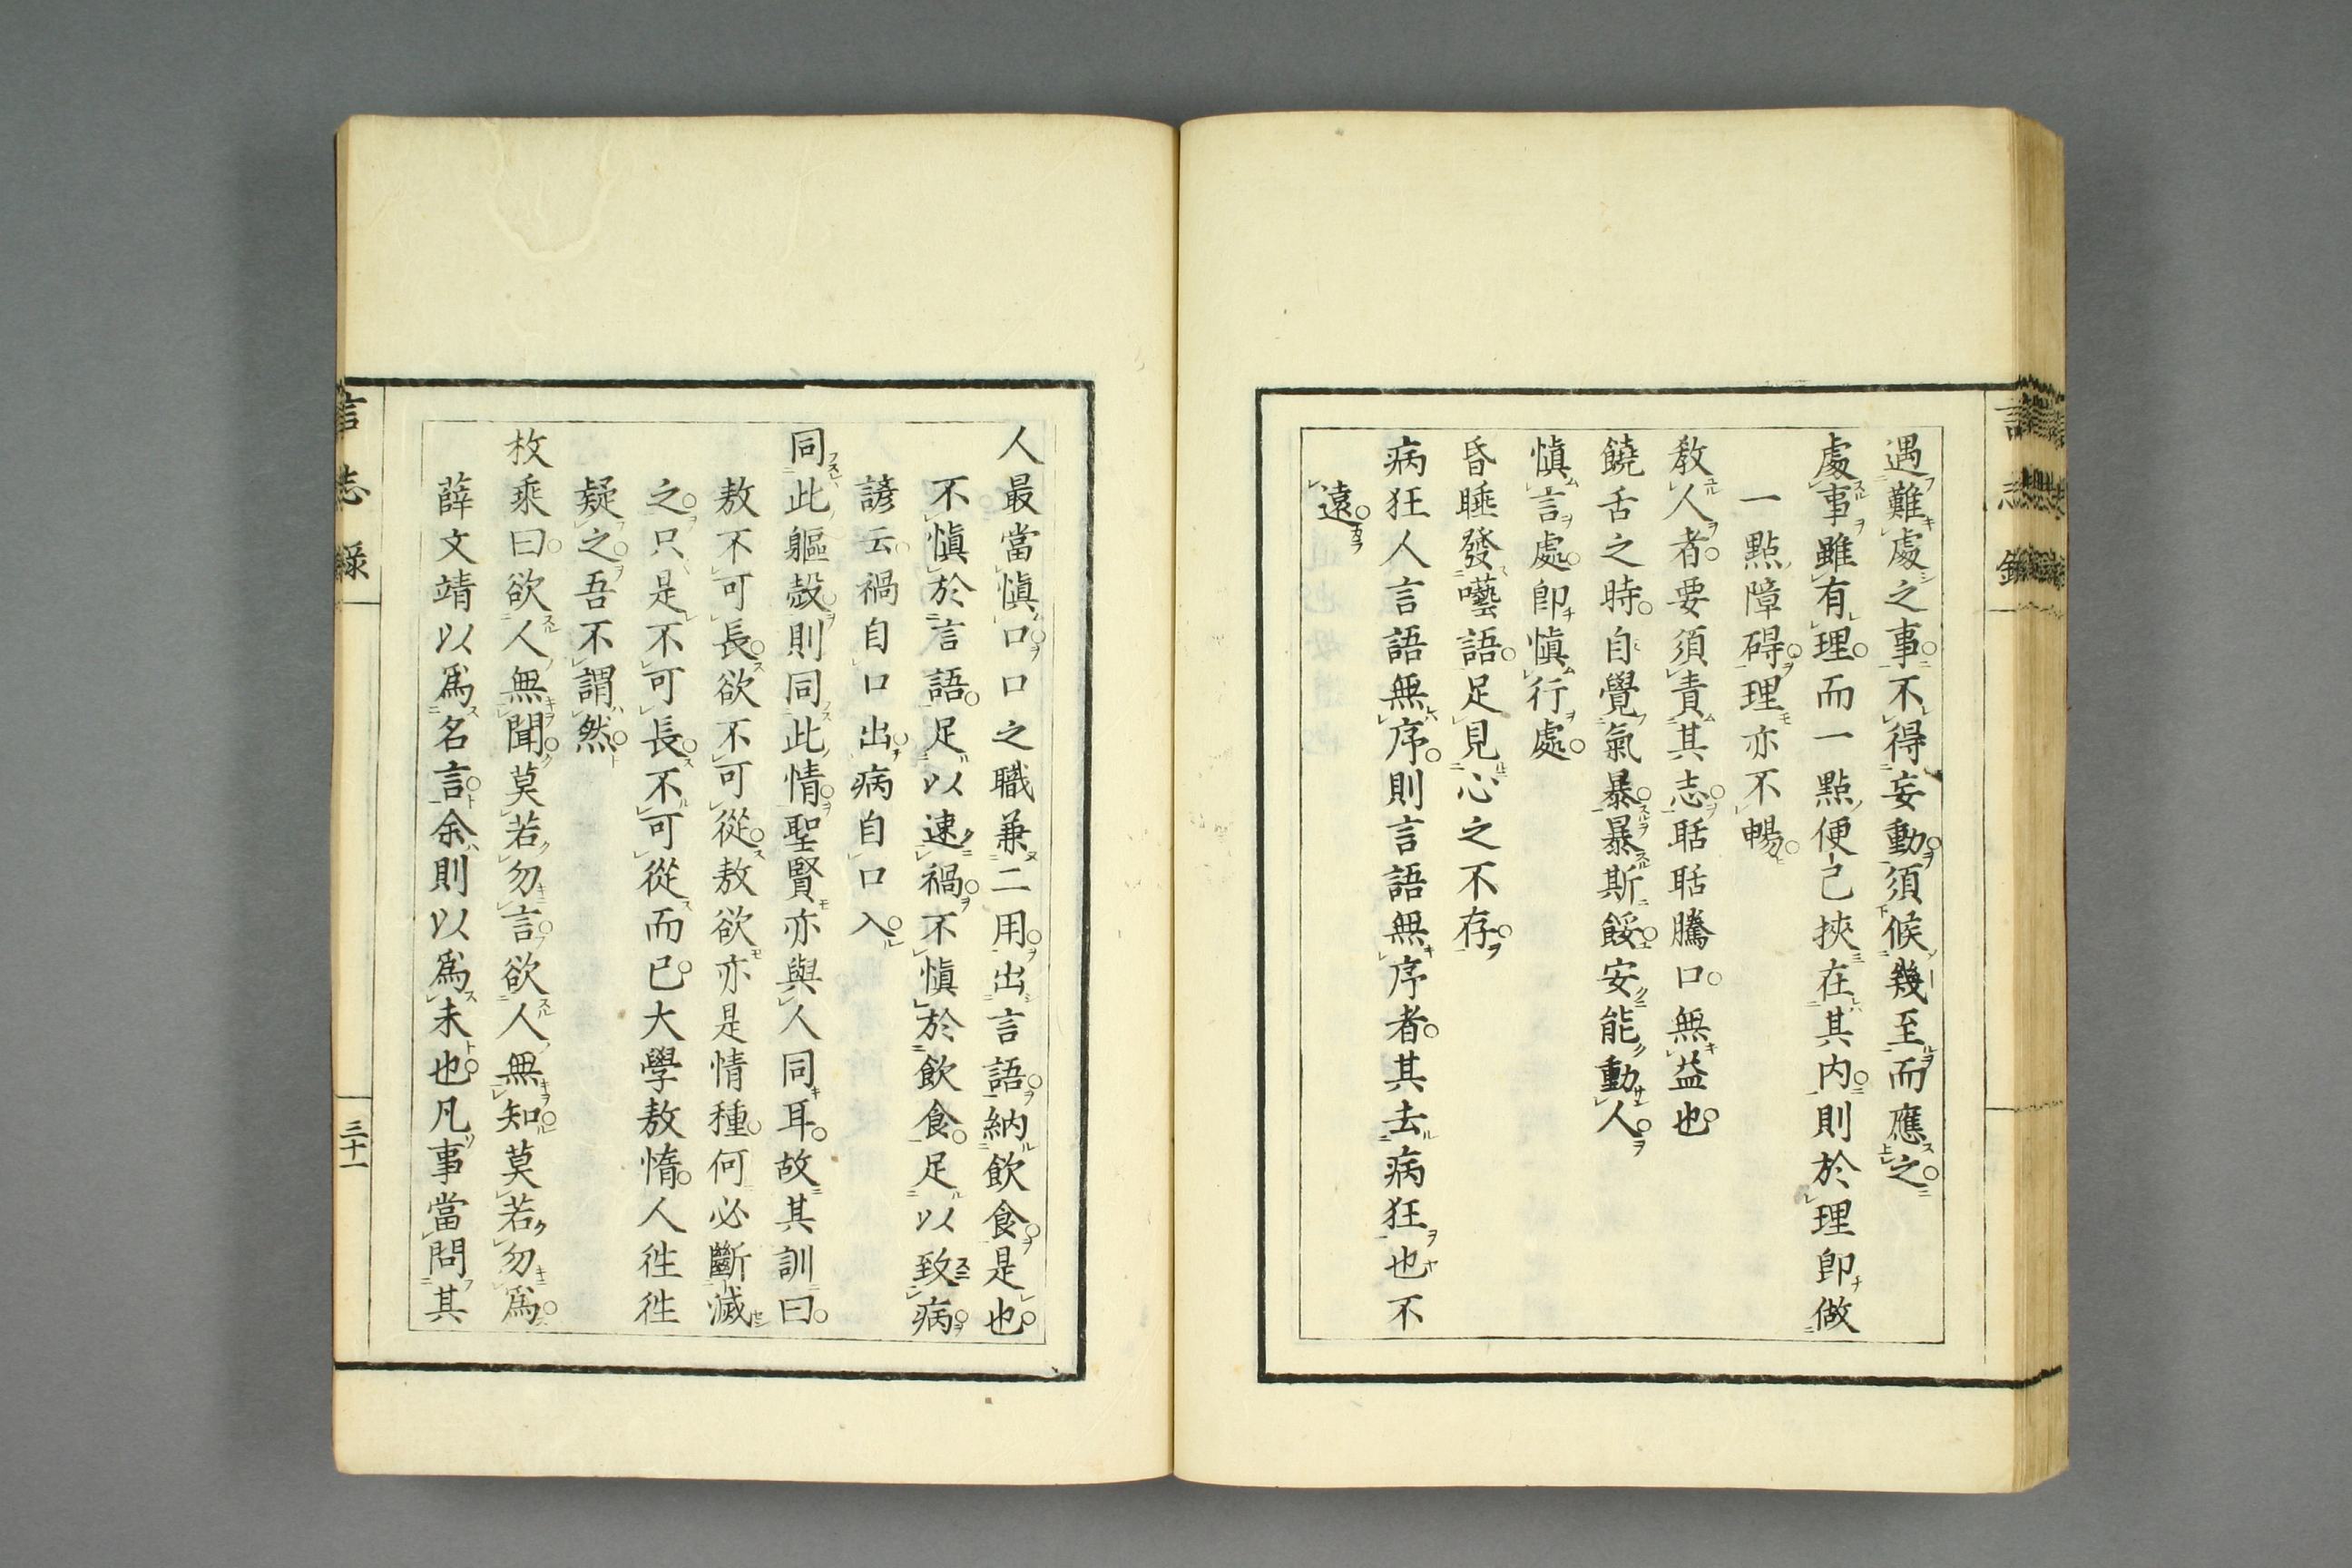 遇難處之事不得妄動須候幾至而應之
處事雖有理而一點便己挾在其内則於理即做
一點障碍理亦不暢
教人者要須責其志聒聒騰口無益也
饒舌之時自覺氣暴暴斯餒安能動人
愼言處即愼行處
昏睡發囈語足見心之不存
病狂人言語無序則言語無序者其去病狂也不
遠
人最當愼口口之職兼二用出言語納飲食是也
不愼於言語足以速禍不愼於飲食足以致病
諺云禍自口出病自口入
同此軀殼則同此情聖賢亦與人同耳故其訓曰
敖不可長欲不可從敖欲亦是情種何必斷滅
之只是不可長不可從而已大學敖惰人徃徃
疑之吾不謂然
枚乘曰欲人無聞莫若勿言欲人無知莫若勿爲
薛文靖以爲名言余則以爲未也凡事當問其
言志録
三十一